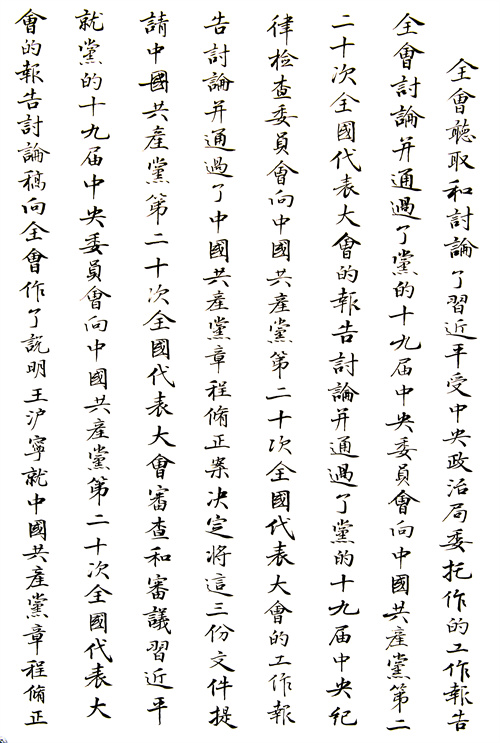 全會聽取和討論了習近平受中央政治局委托作的工作報告
全會討論并通過了黨的十九届中央委員會向中國共產黨第二
二十次全國代表大會的報告討論并通過了黨的十九届中央纪
律檢查委員會向中國共產黨第二十次全國代表大會的工作報
告討論并通過了中國共產黨章程脩正案决定將這三份文件提
請中國共產黨第二十次全國代表大會審查和審議習近平
就黨的十九届中央委員會向中國共產黨第二十次全國代表大
會的報告討論稿向全會作了説明王沪寧就中國共產黨章程脩正